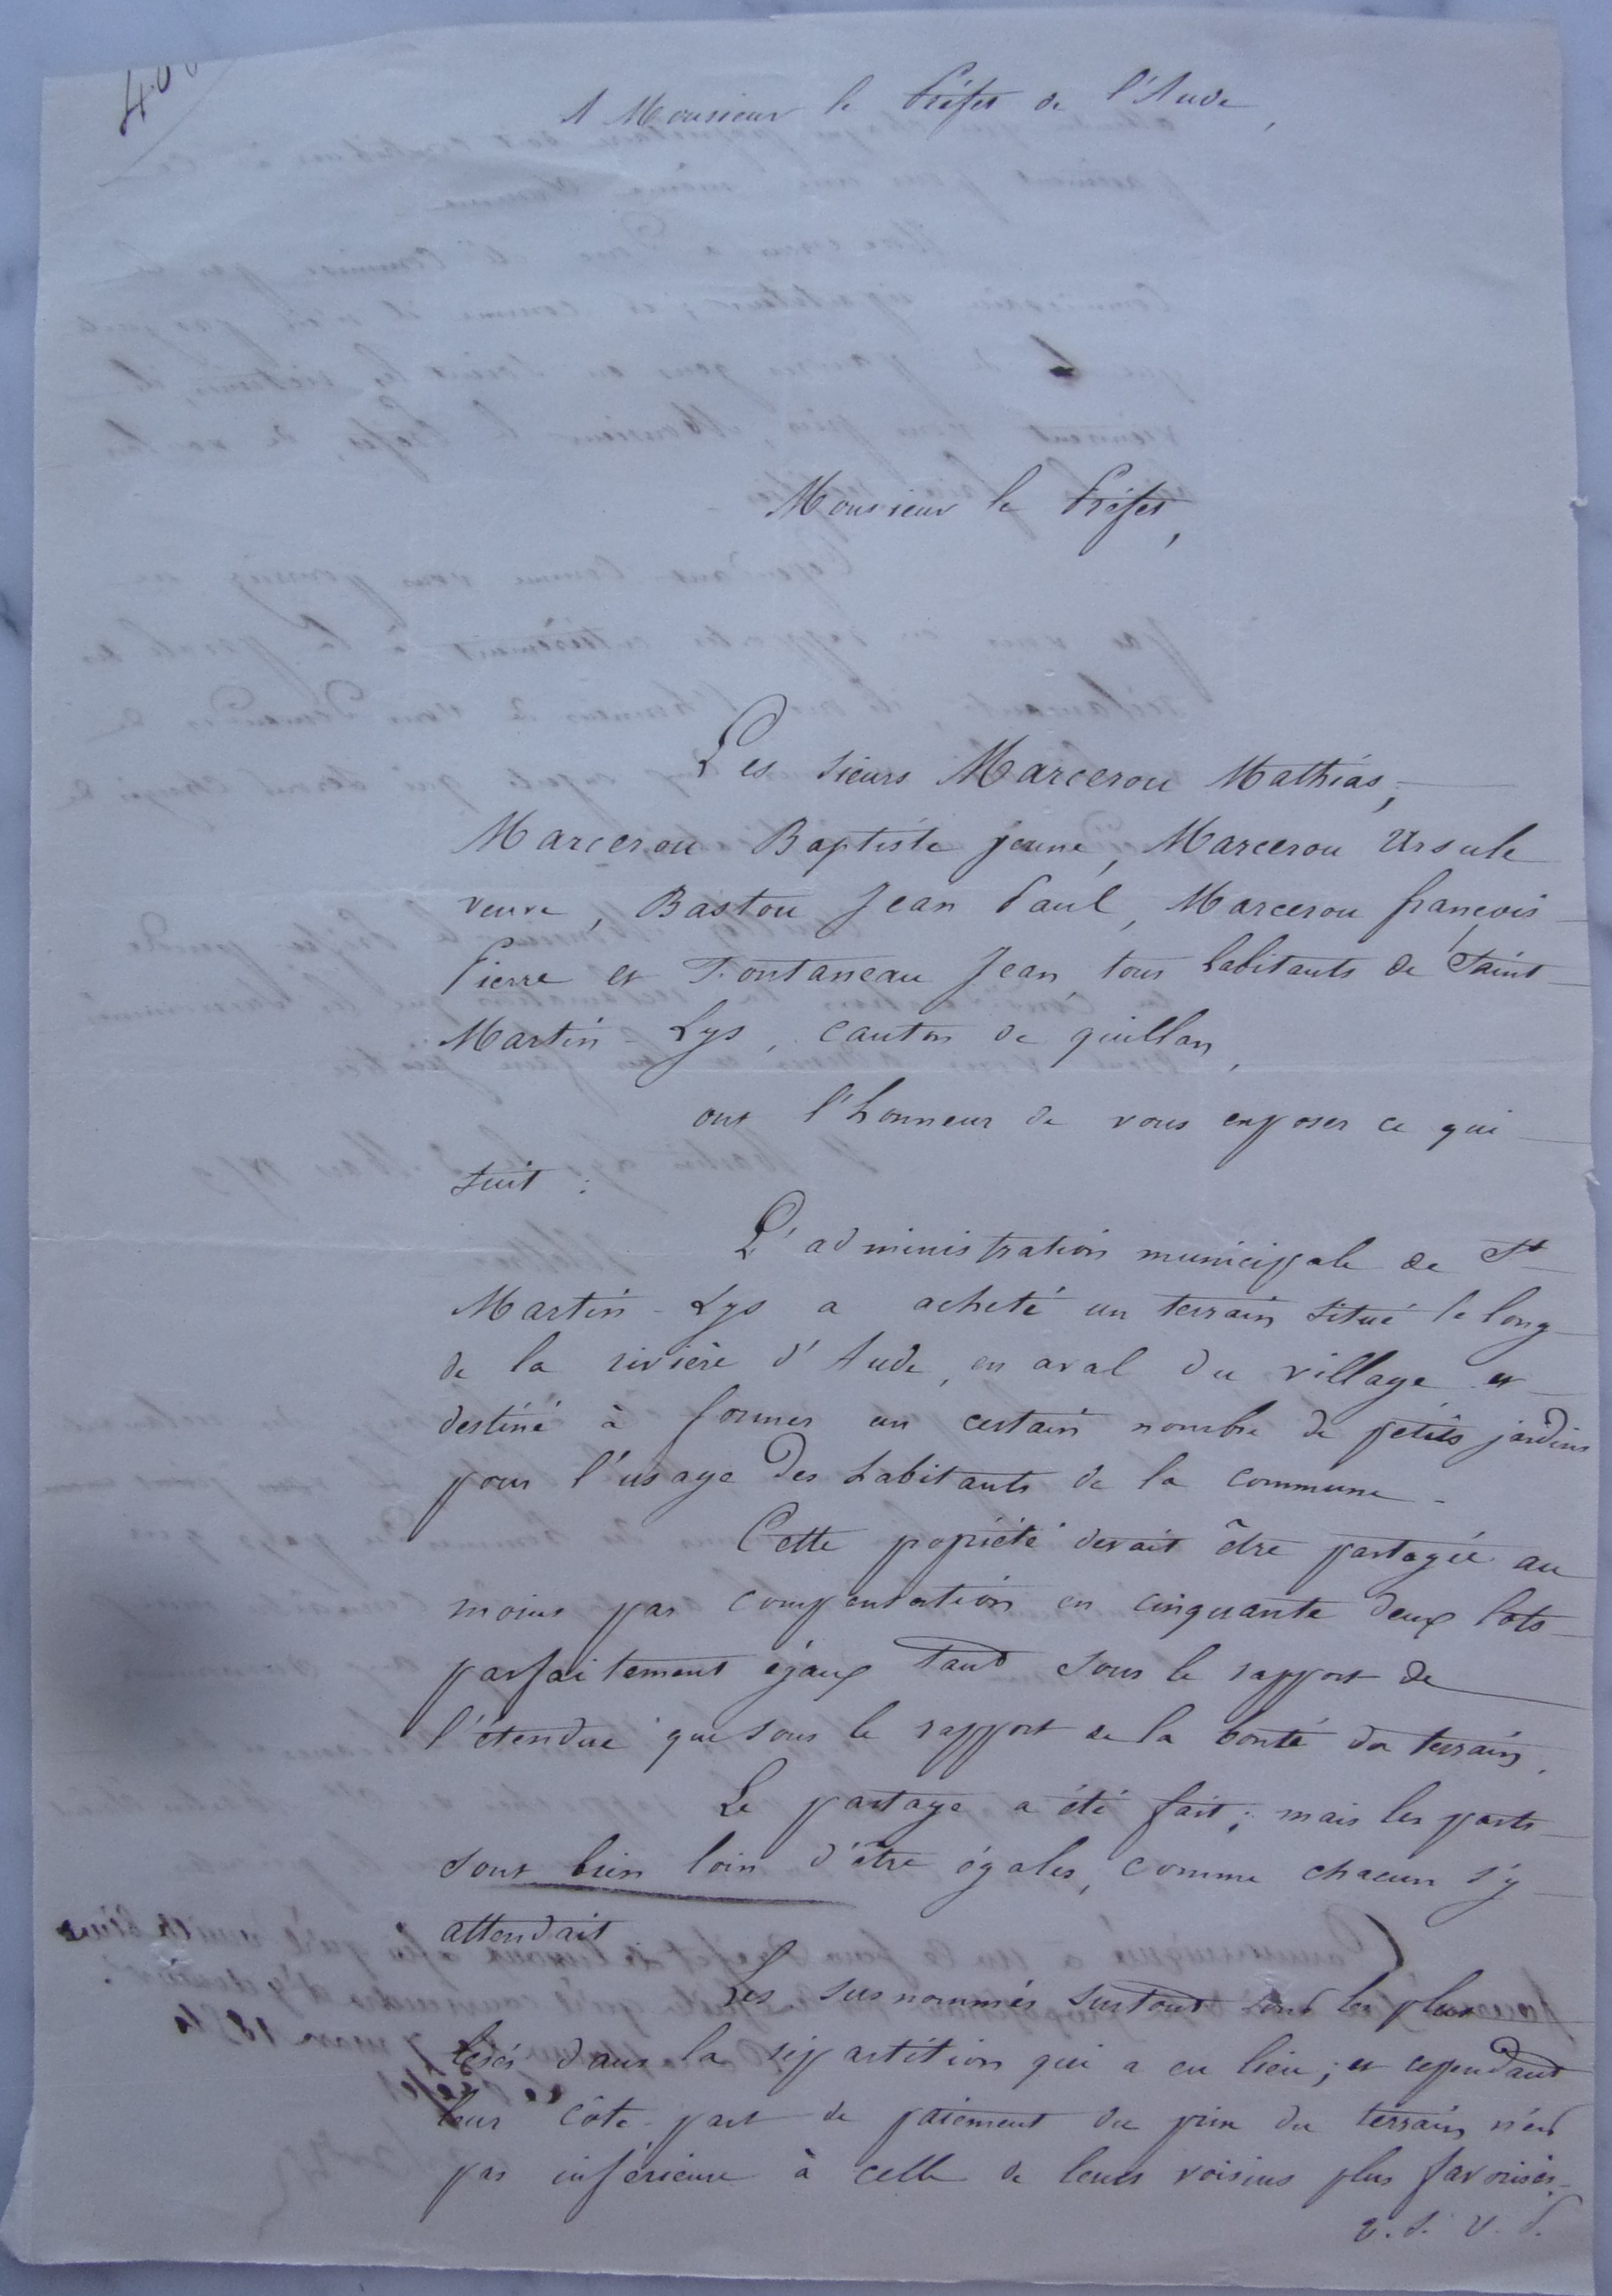 A Monsieur le Préfet de l'Aude,
Monsieur le Préfet,
Les sieurs Marcerou Mathias,
Marcerou Baptiste jeune, Marcerou Ursule
veuve, Bastou Jean Paul, Marcerou françois
Pierre et Fontaneau Jean, tous habitants de Saint
Martin-Lys, canton de quillan,
ont l'honneur de vous exposer ce qui
suit :
L'administration municipale de St
Martin-Lys a acheté un terrain situé le long
de la rivière d'Aude, en aval du village et
destiné à former un certain nombre de petits jardins
pour l'usage des habitants de la commune.
Cette popiété devait être partagée au
moins par compensation en cinquante deux lots
parfaitement égaux tant sous le rapport de
l'étendue que sous le rapport de la bonté du terrain.
Le partage a été fait; mais les parts
sont bien loin d'être égales, comme chacun s'y
attendait
Les susnommés surtout sont les plus
lésés dans la répartition qui a eu lieu; et cependant
leur côte-part de paiement du prix du terrain n'est
pas inférieure à celle de leurs voisins plus favorisés.
v. s. v. p.